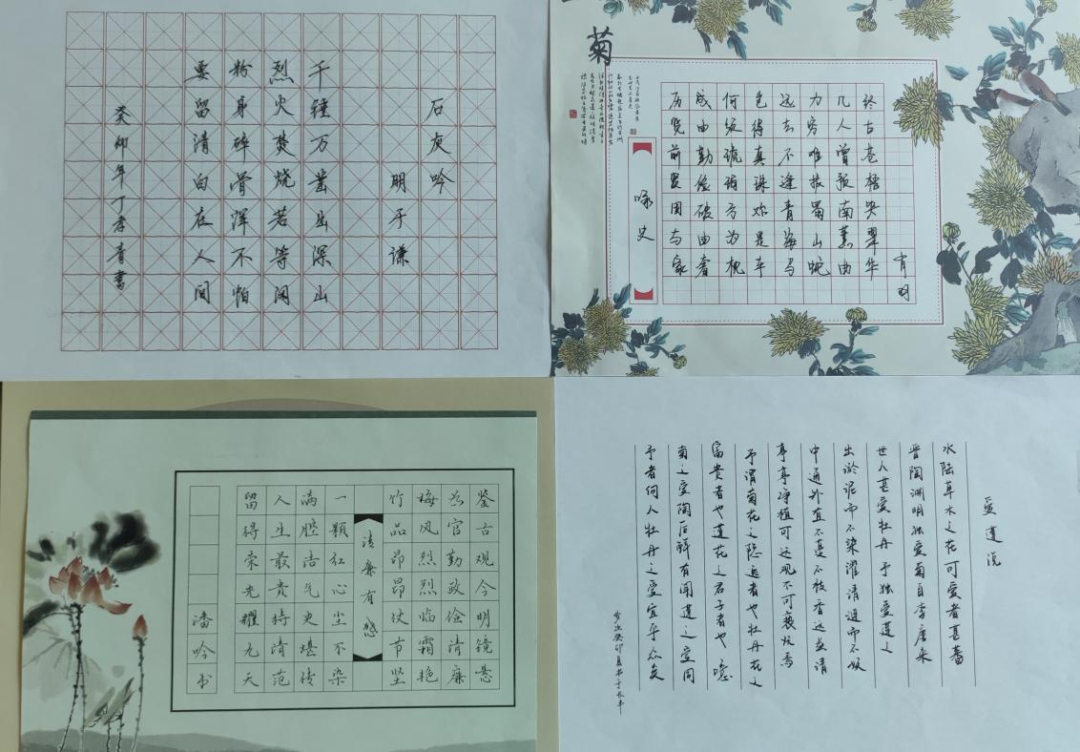 石灰吟
明于谦
千锤万凿出深山
烈火焚烧若等闲
粉身碎骨浑不怕
要留清白在人间
癸卯年丁孝青书
菊
咏史
历览前贤国与家
成由勤俭破由奢
何须琥珀方为枕
得真珠始是车
远去不逢青海马
力穷难拔蜀山蛇
几人曾预南薰曲
终古苍梧哭翠华
肖明
鉴古观今明镜悬
为官勤政俭清廉
梅风烈烈临霜艳
竹品昂昂仗节坚
清廉有感
一颗红心尘不染
满腔浩气史堪传
人生最贵持清范
留得荣光耀九天
潘吟书
爱莲说
水陆草木之花可爱者甚蕃
晋陶渊明独爱菊自李唐来
世人甚爱牡丹予独爱莲之
出淤泥而不染濯清涟而不妖
中通外直不蔓不枝香远益清
亭亭净植可远观不可亵玩焉
予谓菊花之隐逸者也牡丹花之
富贵者也莲花之君子者也噫
菊之爱陶后鲜有闻莲之爱同
予者何人牡丹之爱宜乎众矣